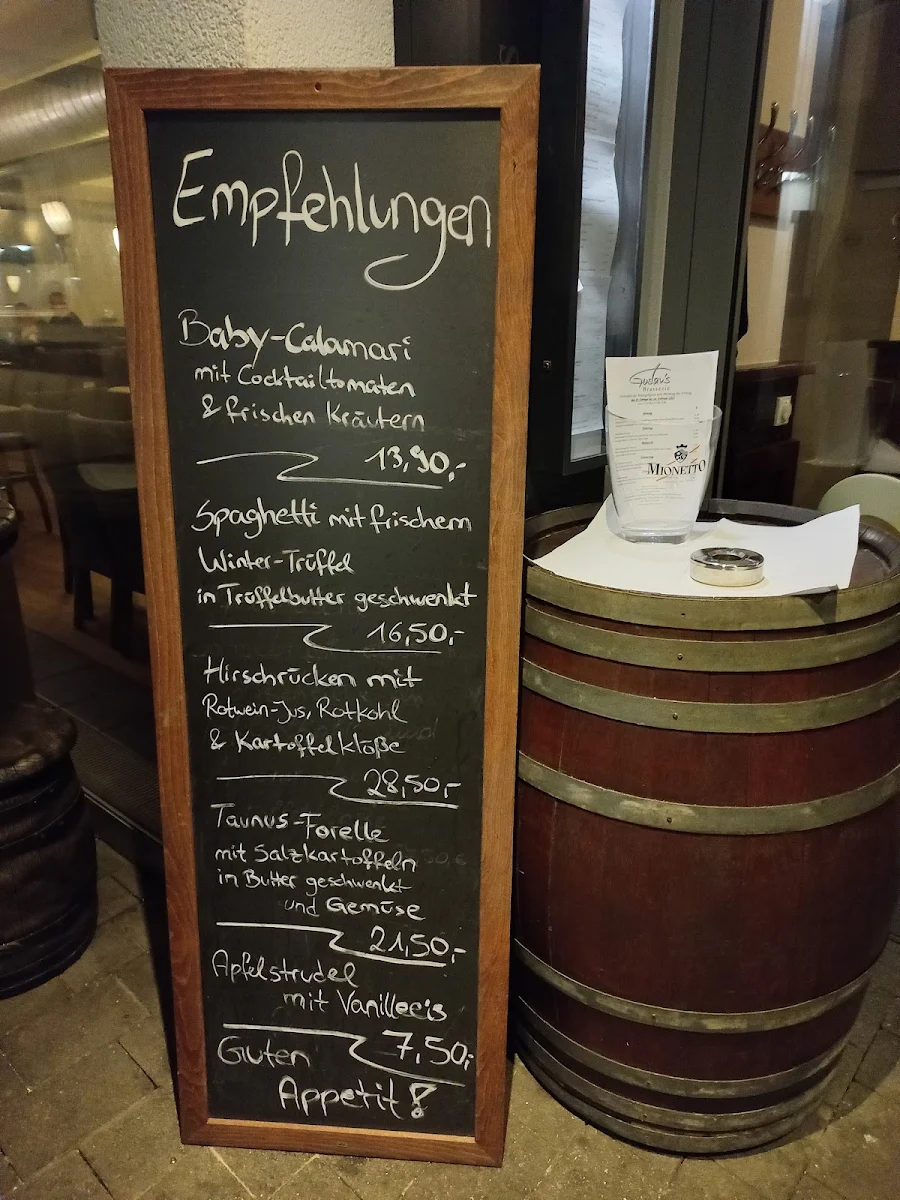 Empfehlungen
Baby-Calamari
mit Cocktailtomaten
& frischen Kräutern
13,90,-
Spaghetti mit frischem
Winter-Trüffel
in Trüffelbutter geschwenkt
16,50,-
Hirschrücken mit
Rotwein-Jus, Rotkohl
& Kartoffelklöße
28,50,-
Taunus-Forelle
mit Salzkartoffeln
in Butter geschwenkt
und Gemüse
21,50,-
Apfelstrudel
mit Vanilleeis
7,50,-
Guten
Appetit!
Gustav's
Brasserie
MIONETTO